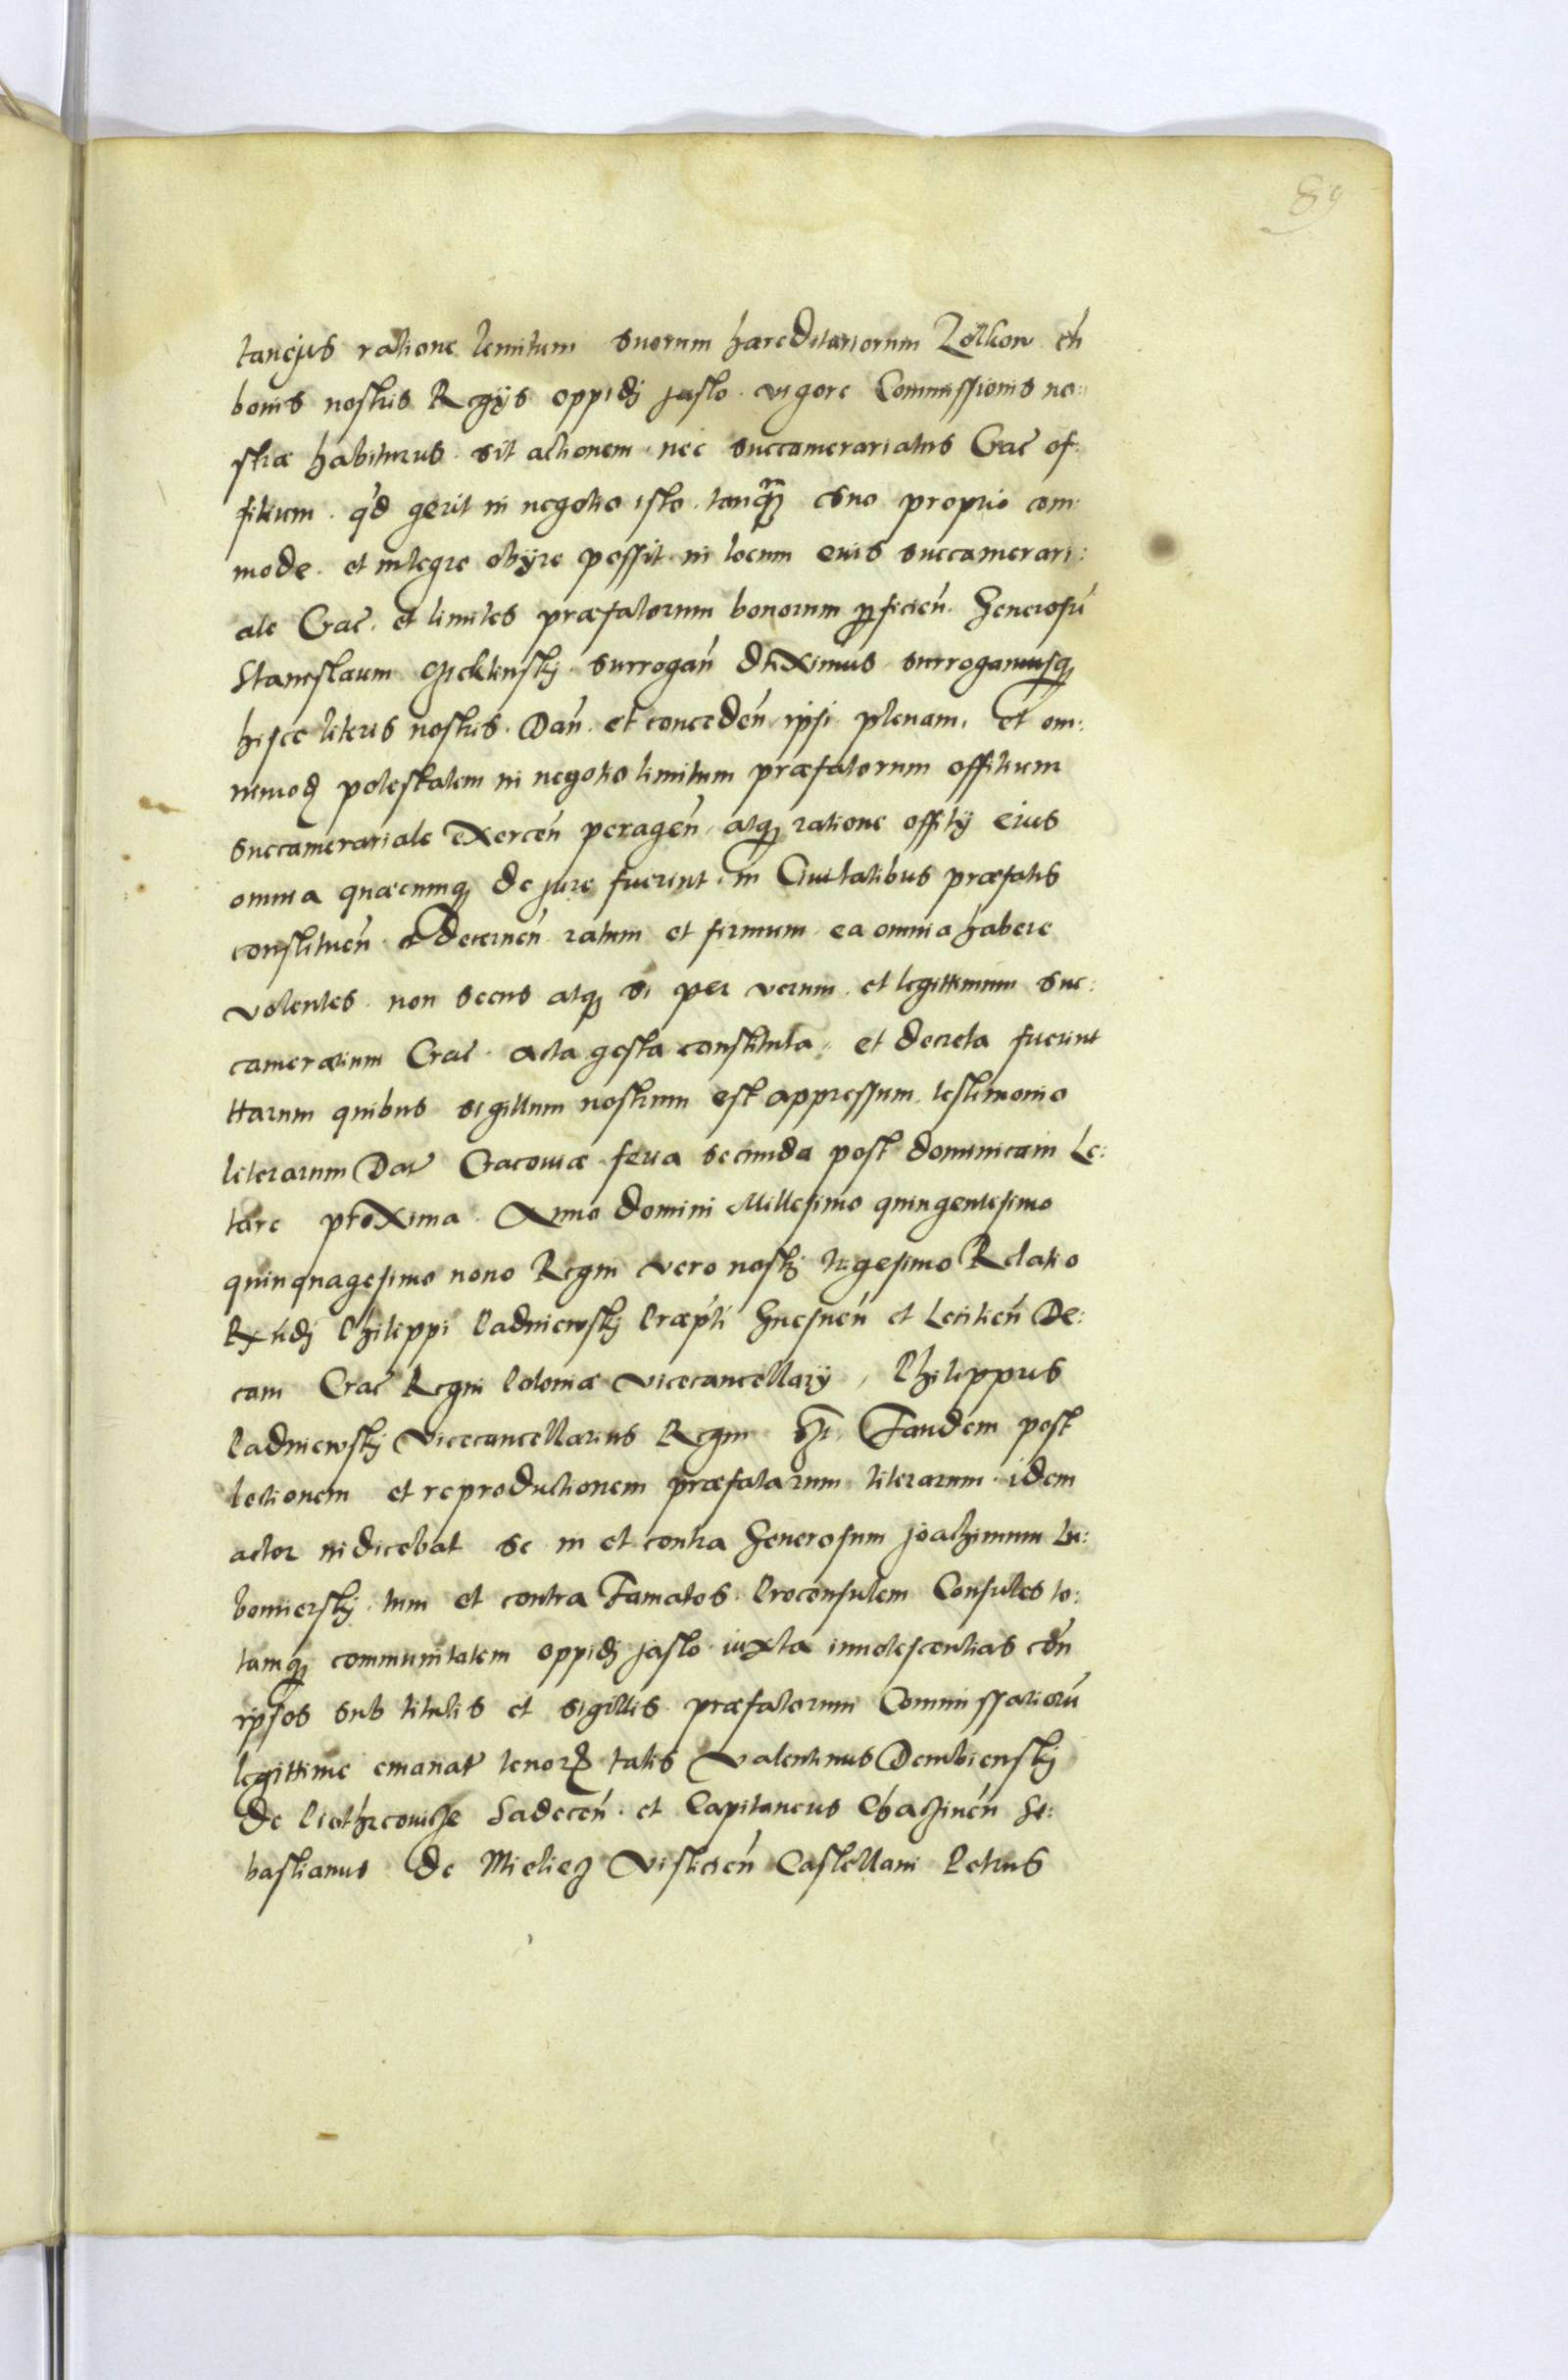 89
taneis ratione limitum suorum hæreditariorum Zolkow cū
bonis nostris Regijs oppidj Jaslo vigore Commissionis no:
stræ habiturus sit actionem nec succamerariatus Crac̄ of
fitium q'd gerit in negotio isto tanq̄ȝ suo proprio com:
mode et integre obijre possit in locum eius succamerari:
ale Crac̄ et limites præfatorum bonorum perficieñ Generosū
Stanislaum surrogañ duximus surrogamusqȝ
hisce literis nostris Dañ et concedeñ ipsi plenam et om:
nimodȝ potestatem in negotio limitum præfatorum offitium
succamerariale exerceñ perageñ atqȝ ratione offitij eius
omnia quæcumqȝ de jure fuerint in Civitatibus præfatis
constitueñ et decerneñ ratum et firmum ea omnia habere
volentes non secus atqȝ si per verum et legittimum suc:
camerarium Crac̄ acta gesta constituta et decreta fuerint
Harum quibus sigillum nostrum est appressum testimonio
literarum Dat Cracoviæ feria secunda post dominicam Le:
tare proxima Anno domini Millesimo quingentesimo
quinquagesimo nono Regni vero nostrj trigesimo Relatio
Rx̄ndj Philippi Padniewskj Præp̄ti Gnesneñ et Lenitieñ De:
cani Crac̄ Regni Poloniæ Vicecancellarij, Philippus
Padniewskj Vicecancellarius Regni Tandem post
lectionem et reproductionem præfatarum literarum idem
actor indicebat se in et contra Generosum Joachimum Lu:
bomierskj tum et contra Famatos Proconsulem Consules to:
tamqȝ communitatem oppidj Jaslo iuxta innotescentias coñ
ipsos sub titulis et sigillis præfatorum Commissariorū
legittime emanat tenorȝ talis Valentinus Dembienskj
de Sadeceñ et Capitaneus Chazineñ Se:
bastianus de Mieliecz Visliceñ Castellani Petrus